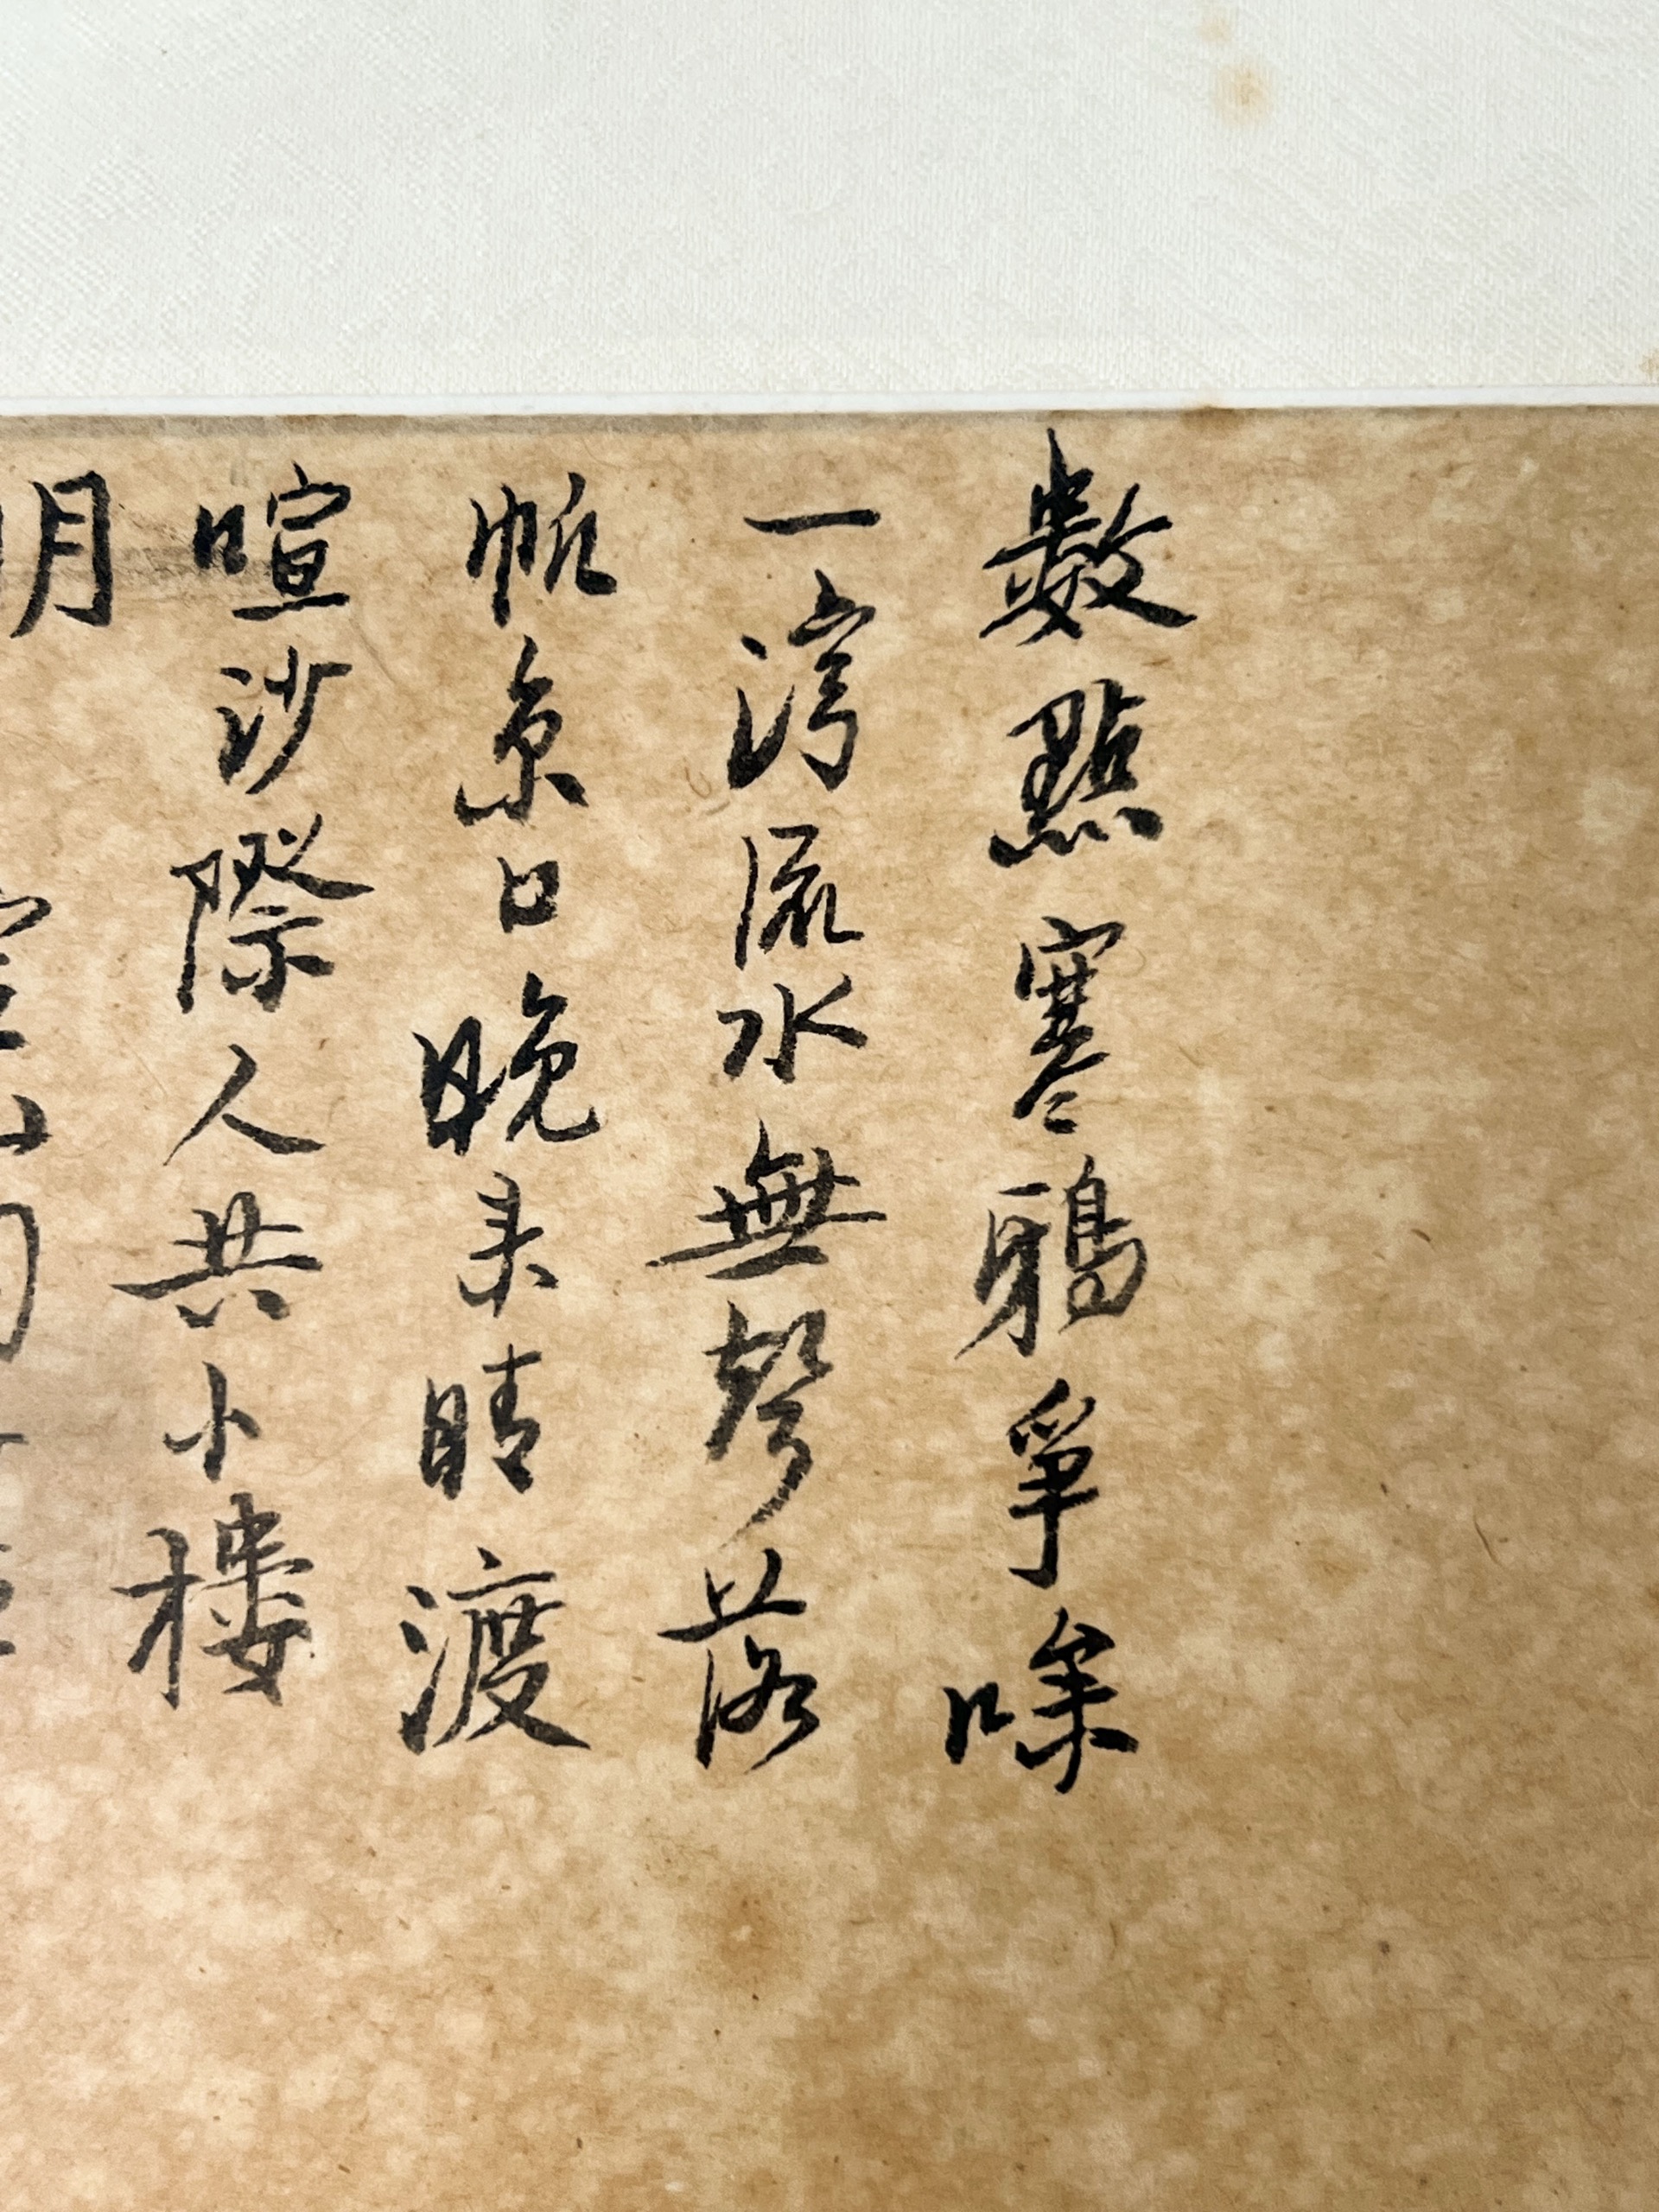 數點寒鴉爭噪
一灣流水無聲落
帆京口晚來晴渡
喧沙際人共小樓
明